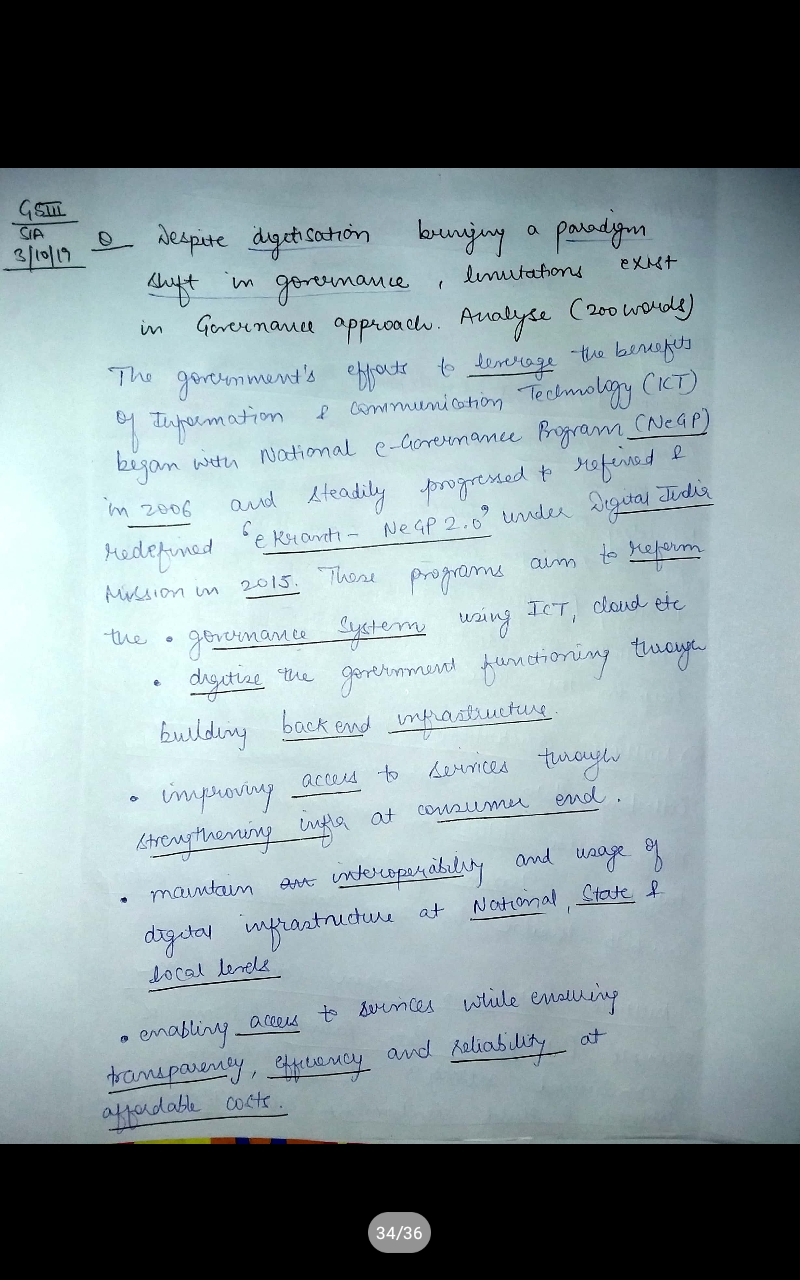 GSIII
SIA
3/10/19
Q Despite digitisation bringing a paradigm
shift in governance, limitations exist
in Governance approach. Analyse (200 words)
The government's efforts to leverage the benefits
of Information & Communication Technology (ICT)
began with National e-Governance Program (NeGP)
in 2006 and steadily progressed to refined &
redefined 'eKranti - NeGP 2.0' under Digital India
Mission in 2015. These programs aim to reform
the • governance system using ICT, cloud etc
• digitize the government functioning through
building backend infrastructure.
• improving access to services through
strengthening infra at consumer end.
• maintain interoperability and usage of
digital infrastructure at National, State &
local levels
• enabling access to services while ensuring
transparency, efficiency and reliability at
affordable costs.
34/36